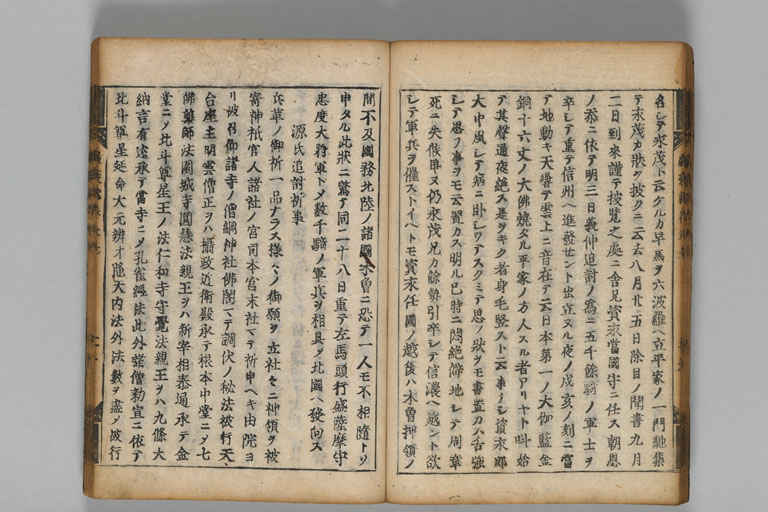 名シテ永茂ト云ケルカ早馬ヲ六波羅ヘ立平家ノ一門馳集
テ永茂カ狀ヲ披クニ云去八月廿五日除目ノ聞書九月
二日到來謹テ披覽之處ニ舍兄資永當國守ニ任ス朝恩
ノ忝ニ依テ明三日義仲追討ノ爲ニ五千餘騎ノ軍士ヲ
卒シテ重テ信州ヘ進發セント出立ヌル夜ノ戌亥ノ刻ニ當
テ地動キ天響テ雲上ニ音在テ云日本第一ノ大伽藍金
銅十六丈ノ大佛燒タル平家ノ方人スル者アリヤト叫始
テ其聲通夜絕ス是ヲキク者身毛竪スト云事ナシ資永郎
大中風シテ病ニ臥シワアスクミテ思ノ狀ヲモ書置カハ舌強
シテ思フ事ヲモ云置カス明ル巳時ニ悶絕僻地シテ周章
死ニ失候畢ヌ仍永茂兄カ餘勢引卒シテ信濃ヘ越ント欲
シテ軍兵ヲ催ストイヘトモ資永任國ノ越後ハ木曽押領ノ
間不及國務北陸ノ諸國木曽ニ恐テ一人モ不相隨トソ
申タル此狀ニ驚テ同二十八日重テ左馬頭行盛薩摩守
忠度大將軍トメ數千騎ノ軍兵ヲ相具メ北國ヘ發向ス
源氏追討祈事
兵革ノ御祈一品ナラス樣々ノ御願ヲ立社々ニ神領ヲ被
寄神祇官人諸社ノ宮司本宮末社マテ祈申ヘキ由院ヨ
リ被召仰諸寺ノ僧綱神社佛閣マテ調伏ノ秘法被行天
台座主明雲僧正ヲハ攝政近衛殿承テ根本中堂ニメ七
佛藥師法園城寺圓惠法親王ヲハ新宰相泰通承テ金
堂ニメ北斗尊星王ノ法仁和寺守覺法親王ヲハ九條大
納言有遠承テ當寺ニメ孔雀經法此外諸僧勅宣ニ依テ
北斗尊星延命大元辨才隱天內法外法數ヲ盡メ被行